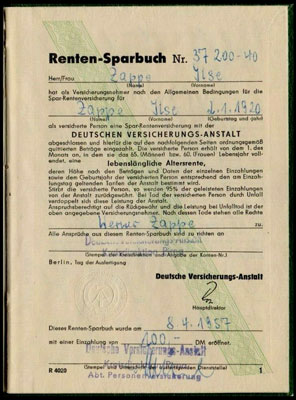 Renten-Sparbuch Nr. 37 200-40
Herr/Frau Zappe Ilse
(Name) (Vorname)
hat als Versicherungsnehmer nach den Allgemeinen Bedingungen für die
Spar-Rentenversicherung für
Zappe Ilse 2.1.1920
(Name) (Vorname) (Geburtstag und -jahr)
als versicherte Person eine Spar-Rentenversicherung mit der
DEUTSCHEN VERSICHERUNGS-ANSTALT
abgeschlossen und hierfür die auf den nachfolgenden Seiten ordnungsgemäß
quittierten Beträge eingezahlt. Die versicherte Person erhält von dem 1. des
Monats an, in dem sie das 65. (Männer) bzw. 60. (Frauen) Lebensjahr voll-
endet, eine
lebenslängliche Altersrente,
deren Höhe nach den Beträgen und Daten der einzelnen Einzahlungen
sowie dem Geburtstag der versicherten Person entsprechend den am Einzah-
lungstag geltenden Tarifen der Anstalt bestimmt wird.
Stirbt die versicherte Person, so werden 95% der geleisteten Einzahlungen
von der Anstalt zurückgewährt. Bei Tod der versicherten Person durch Unfall
verdoppelt sich diese Leistung der Anstalt.
Anspruchsberechtigt auf die Rückgewähr und die Leistung bei Unfalltod ist der
oben angegebene Versicherungsnehmer. Nach dessen Tode stehen alle Rechte
Zappe zu.
Alle Ansprüche aus diesem Renten-Sparbuch sind zu richten an
Deutsche Versicherungs-Anstalt
(Stempel der Kreisdirektion und Angabe der Konten-Nr.)
Berlin, Tag der Ausfertigung
Deutsche Versicherungs-Anstalt
Hauptdirektor
Dieses Renten-Sparbuch wurde am 8.4.1957
mit einer Einzahlung von 100,- DM eröffnet.
Deutsche Versicherungs-Anstalt
(Stempel und Unterschrift der ausfertigenden Dienststelle)
Abt. Personenversicherung
R 4020 1